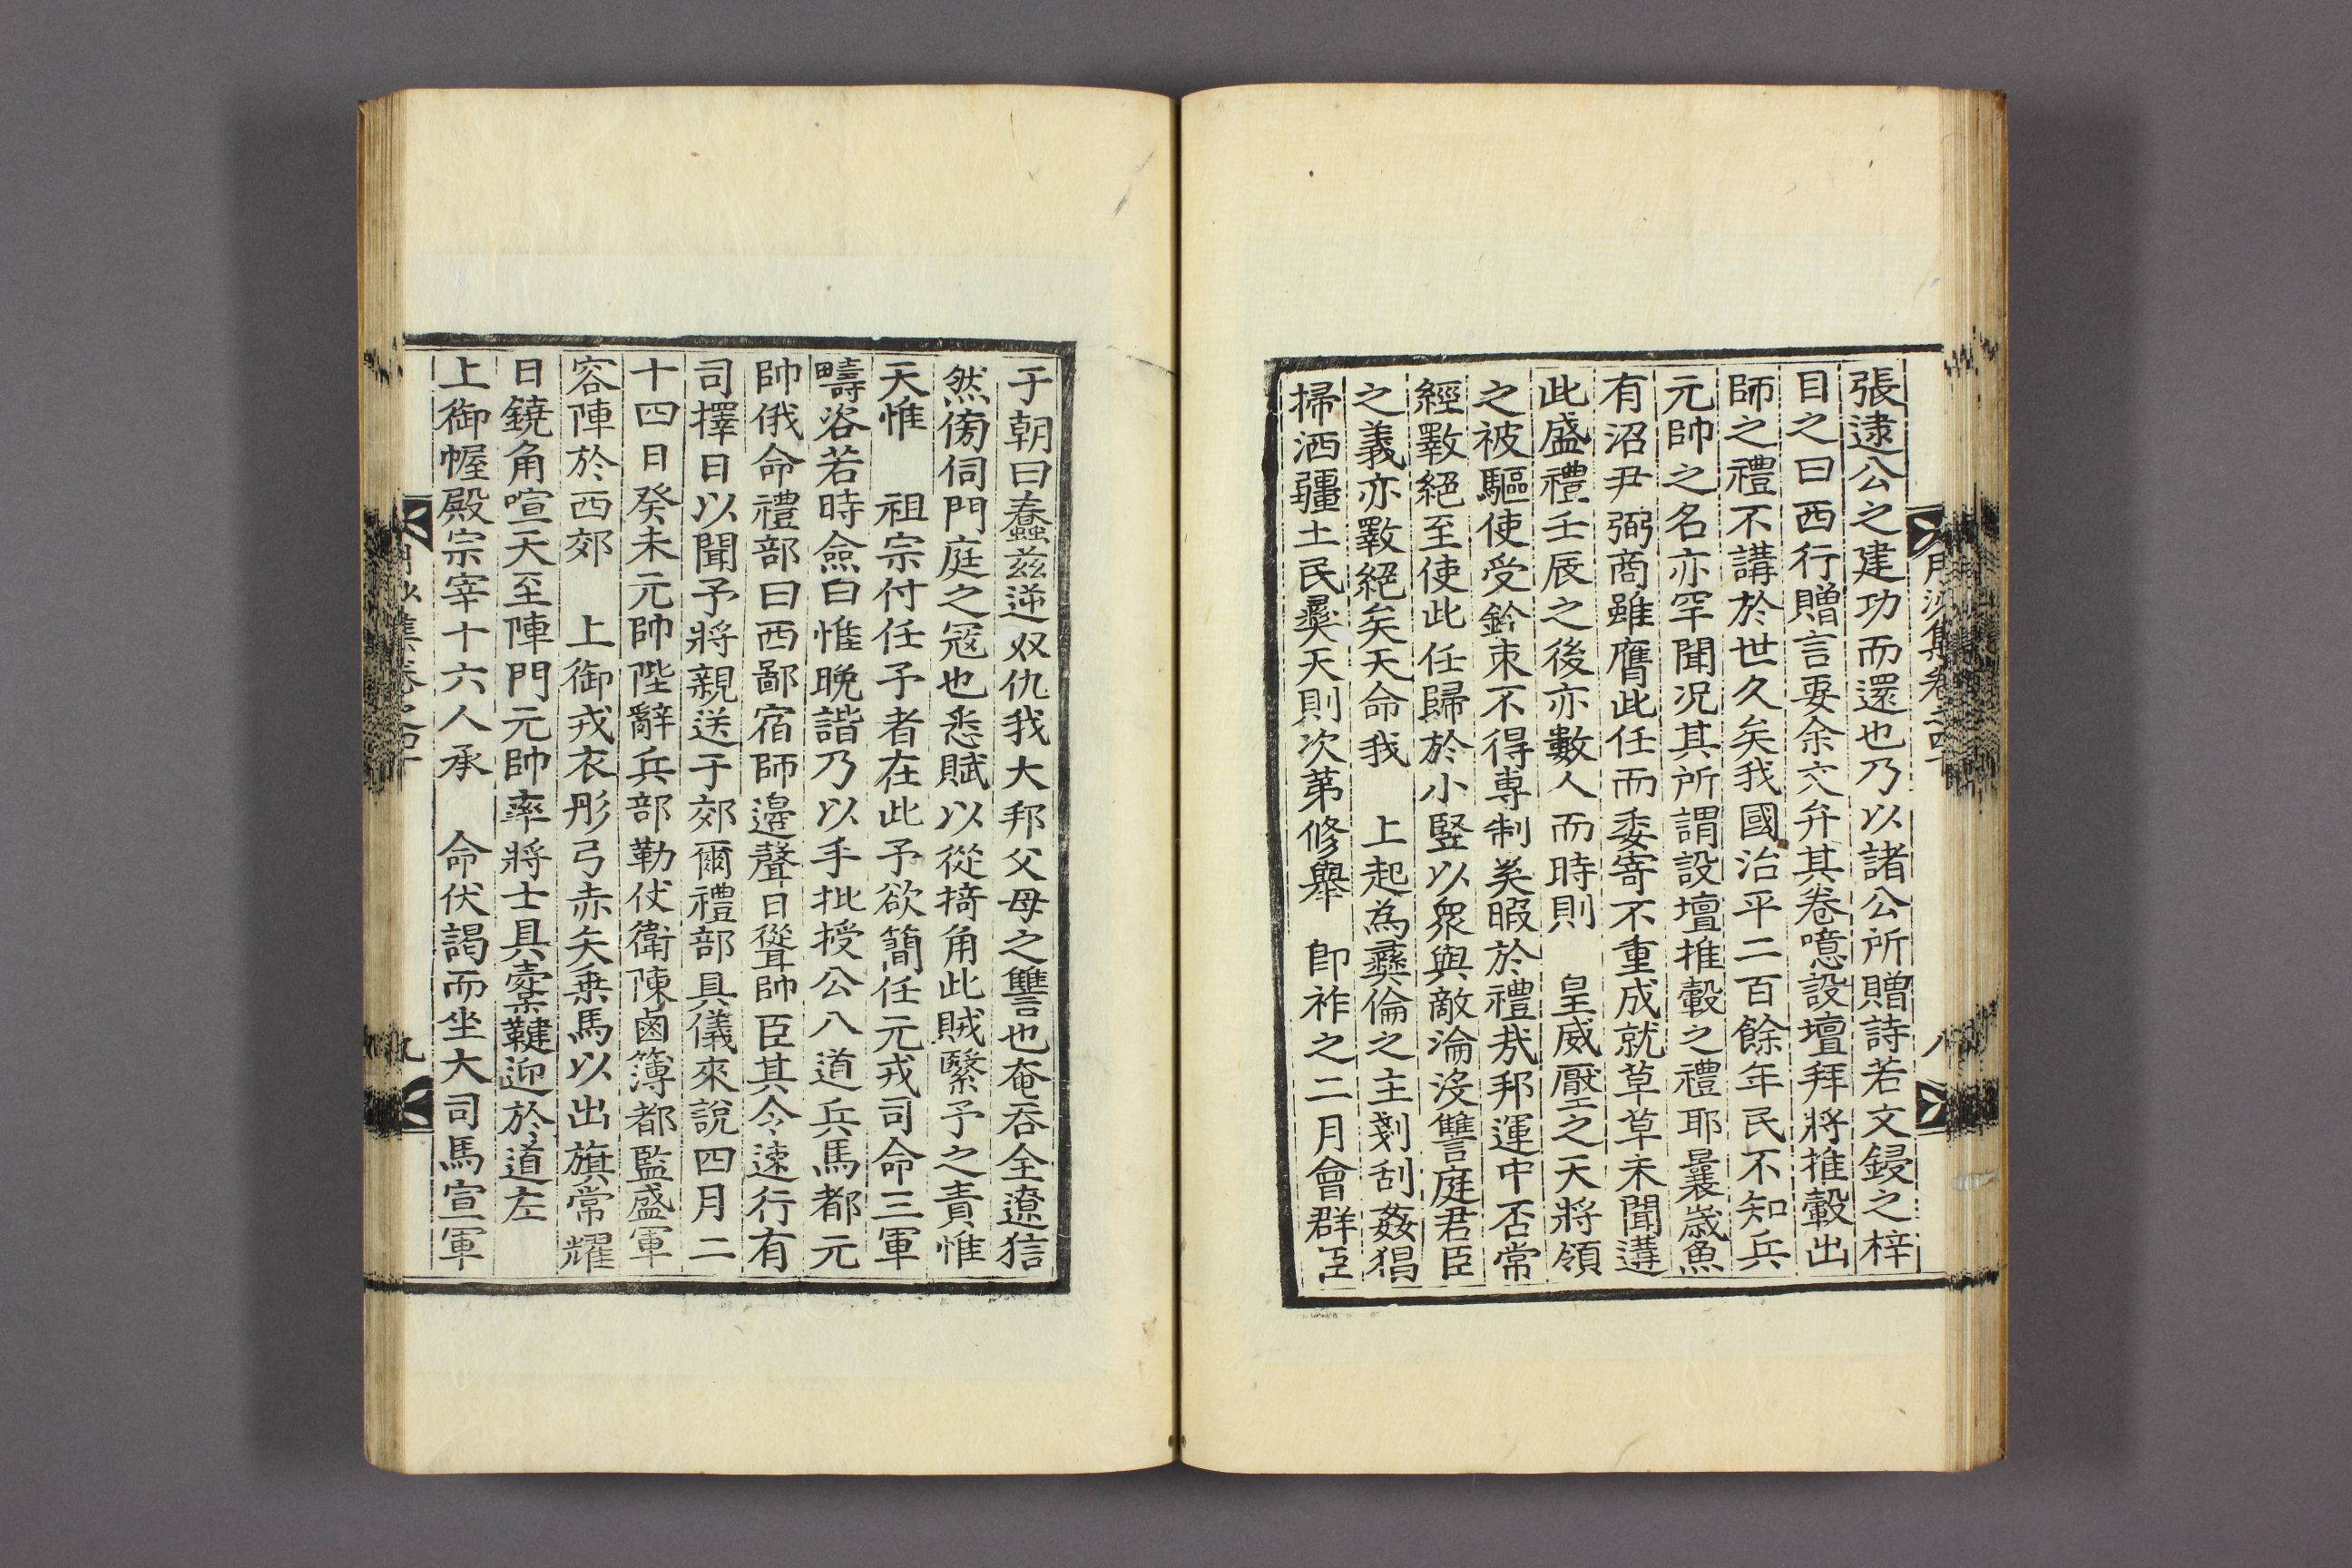 張逮公之建功而還也乃以諸公所贈詩若文鋟之梓
目之曰西行贈言要余六弁其卷噫設壇拜將推轂出
師之禮不講於世久矣我國治平二百餘年民不知兵
元帥之名亦罕聞況其所謂設壇推轂之禮耶曩歲魚
有沼尹弼商雖膺此任而委寄不重成就草草未聞遘
此盛禮壬辰之後亦數人而時則 皇威壓之天將領
之被驅使受鈐束不得專制奚暇於禮㢤邦運中否常
經斁絕至使此任歸於小竪以衆與敵淪沒讐庭君臣
之義亦斁絕矣天命我 上起為彛倫之主剗刮姦猖
掃洒疆土民彛天則次第修擧 卽祚之二月會群臣
于朝曰蠢茲逆奴仇我大邦父母之讐也奄吞全遼狺
然傍伺門庭之冦也悉賦以從掎角此賊繄予之責惟
天惟 祖宗付任予者在此予欲簡任元戎司命三軍
疇咨若時僉曰惟晚諧乃以手批授公八道兵馬都元
帥俄命禮部曰西鄙宿師邉聲日聳帥臣其令速行有
司擇日以聞予將親送于郊爾禮部具儀來說四月二
十四日癸未元帥陛辭兵部勒仗衛陳鹵簿都監盛軍
容陣於西郊 上御戎衣彤弓赤矢乗馬以出旗常耀
日鐃角喧天至陣門元帥率將士具櫜鞬迎於道左
上御幄殿宗宰十六人承 命伏謁而坐大司馬宣軍